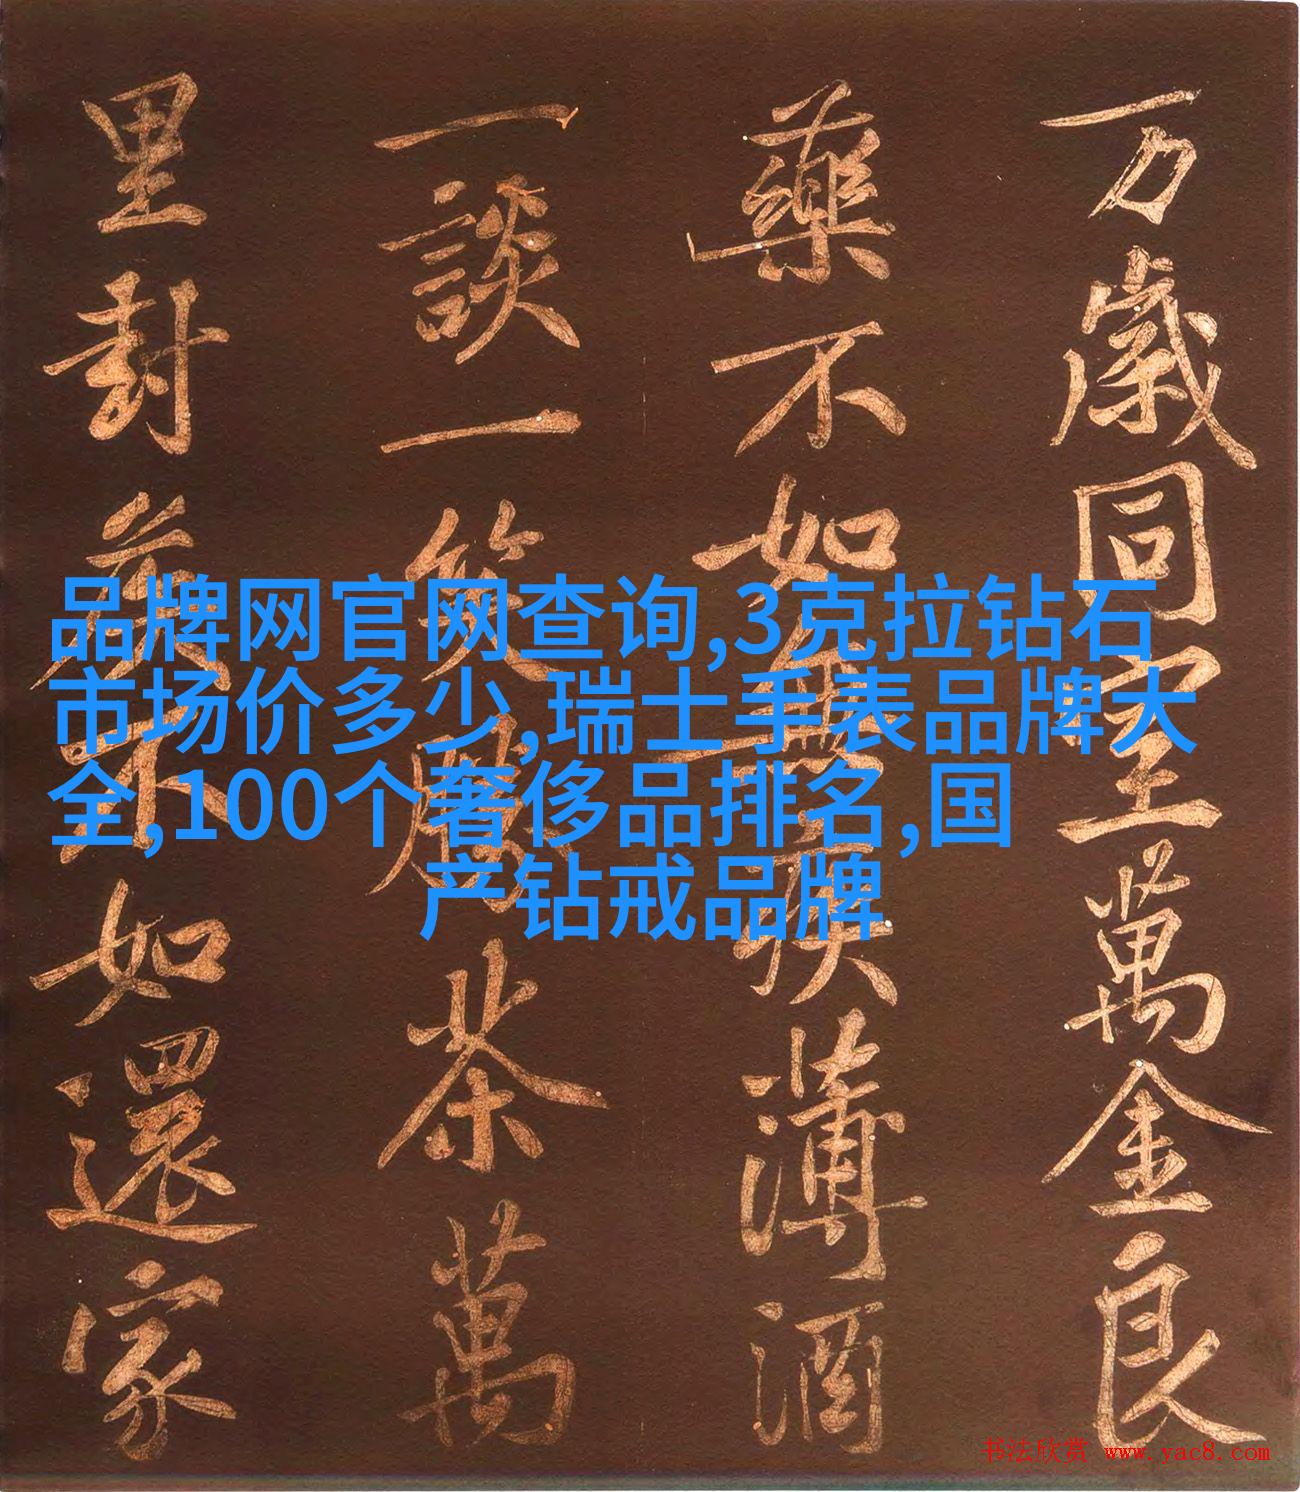 万歲同室萬金良
藥不如無疾薄酒
一談一笑勝茶萬
里封侯不如還家
品牌网官网查询,3克拉钻石
市场价多少,瑞士手表品牌大
全,100个奢侈品排名,国
产钻戒品牌
书法欣赏 www.yac8.com